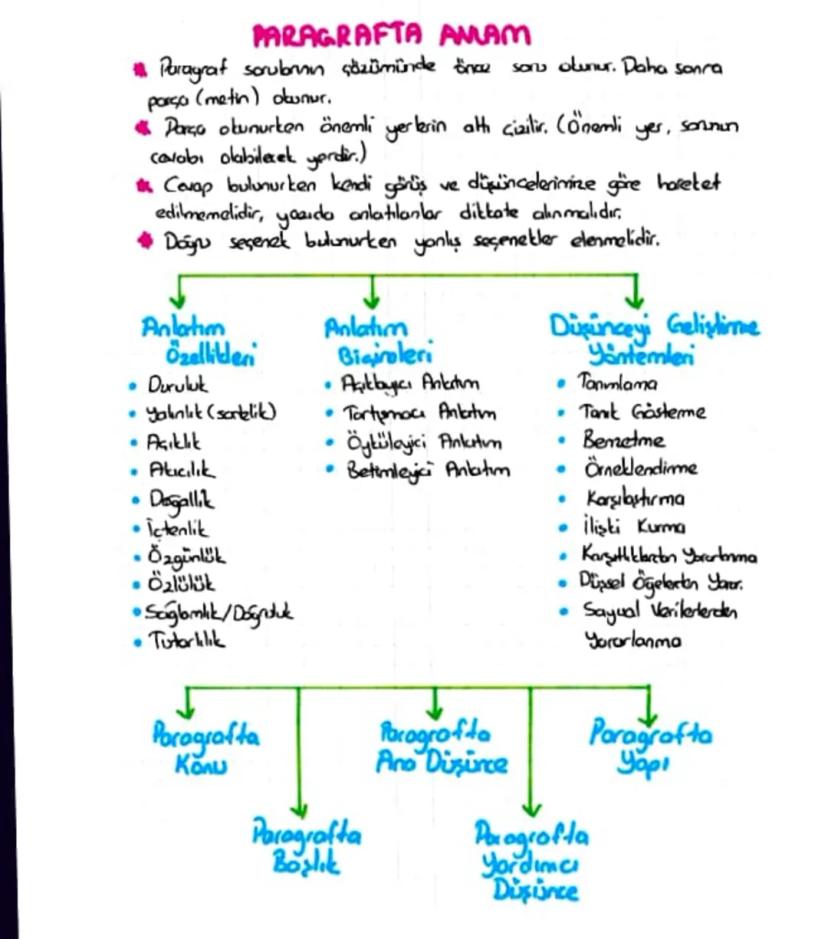 PARAGRAFTA ANLAM
Paragraf sorularının çözümünde önce soru okunur. Daha sonra
parça (metin) okunur.
Parça okunurken önemli yerlerin altı çizilir. (Önemli yer, sorunun
cevabı olabilecek yerdir.)
Cevap bulunurken kendi görüş ve düşüncelerimize göre hareket
edilmemelidir, yazıda anlatılanlar dikkate alınmalıdır.
Doğru seçenek bulunurken yanlış seçenekler elenmelidir.
Anlatım
Özellikleri
• Duruluk
• Yalınlık (sadelik)
• Açıklık
• Akıcılık
• Doğallık
• İçtenlik
• Özgünlük
• Özlülük
• Sağlamlık/Doğruluk
• Tutarlılık
Anlatım
Biçimleri
• Açıklayıcı Anlatım
• Tartışmacı Anlatım
• Öyküleyici Anlatım
• Betimleyici Anlatım
Düşünceyi Geliştirme
Yöntemleri
• Tanımlama
• Tanık Gösterme
• Benzetme
• Örneklendirme
• Karşılaştırma
• İlişki Kurma
• Karşıtlıklardan Yararlanma
• Düşsel Ögelerden Yarar.
• Sayısal Verilerlerden
Yararlanma
Paragrafta
Konu
Paragrafta
Başlık
Paragrafta
Ana Düşünce
Paragrafta
Yardımcı
Düşünce
Paragrafta
Yapı